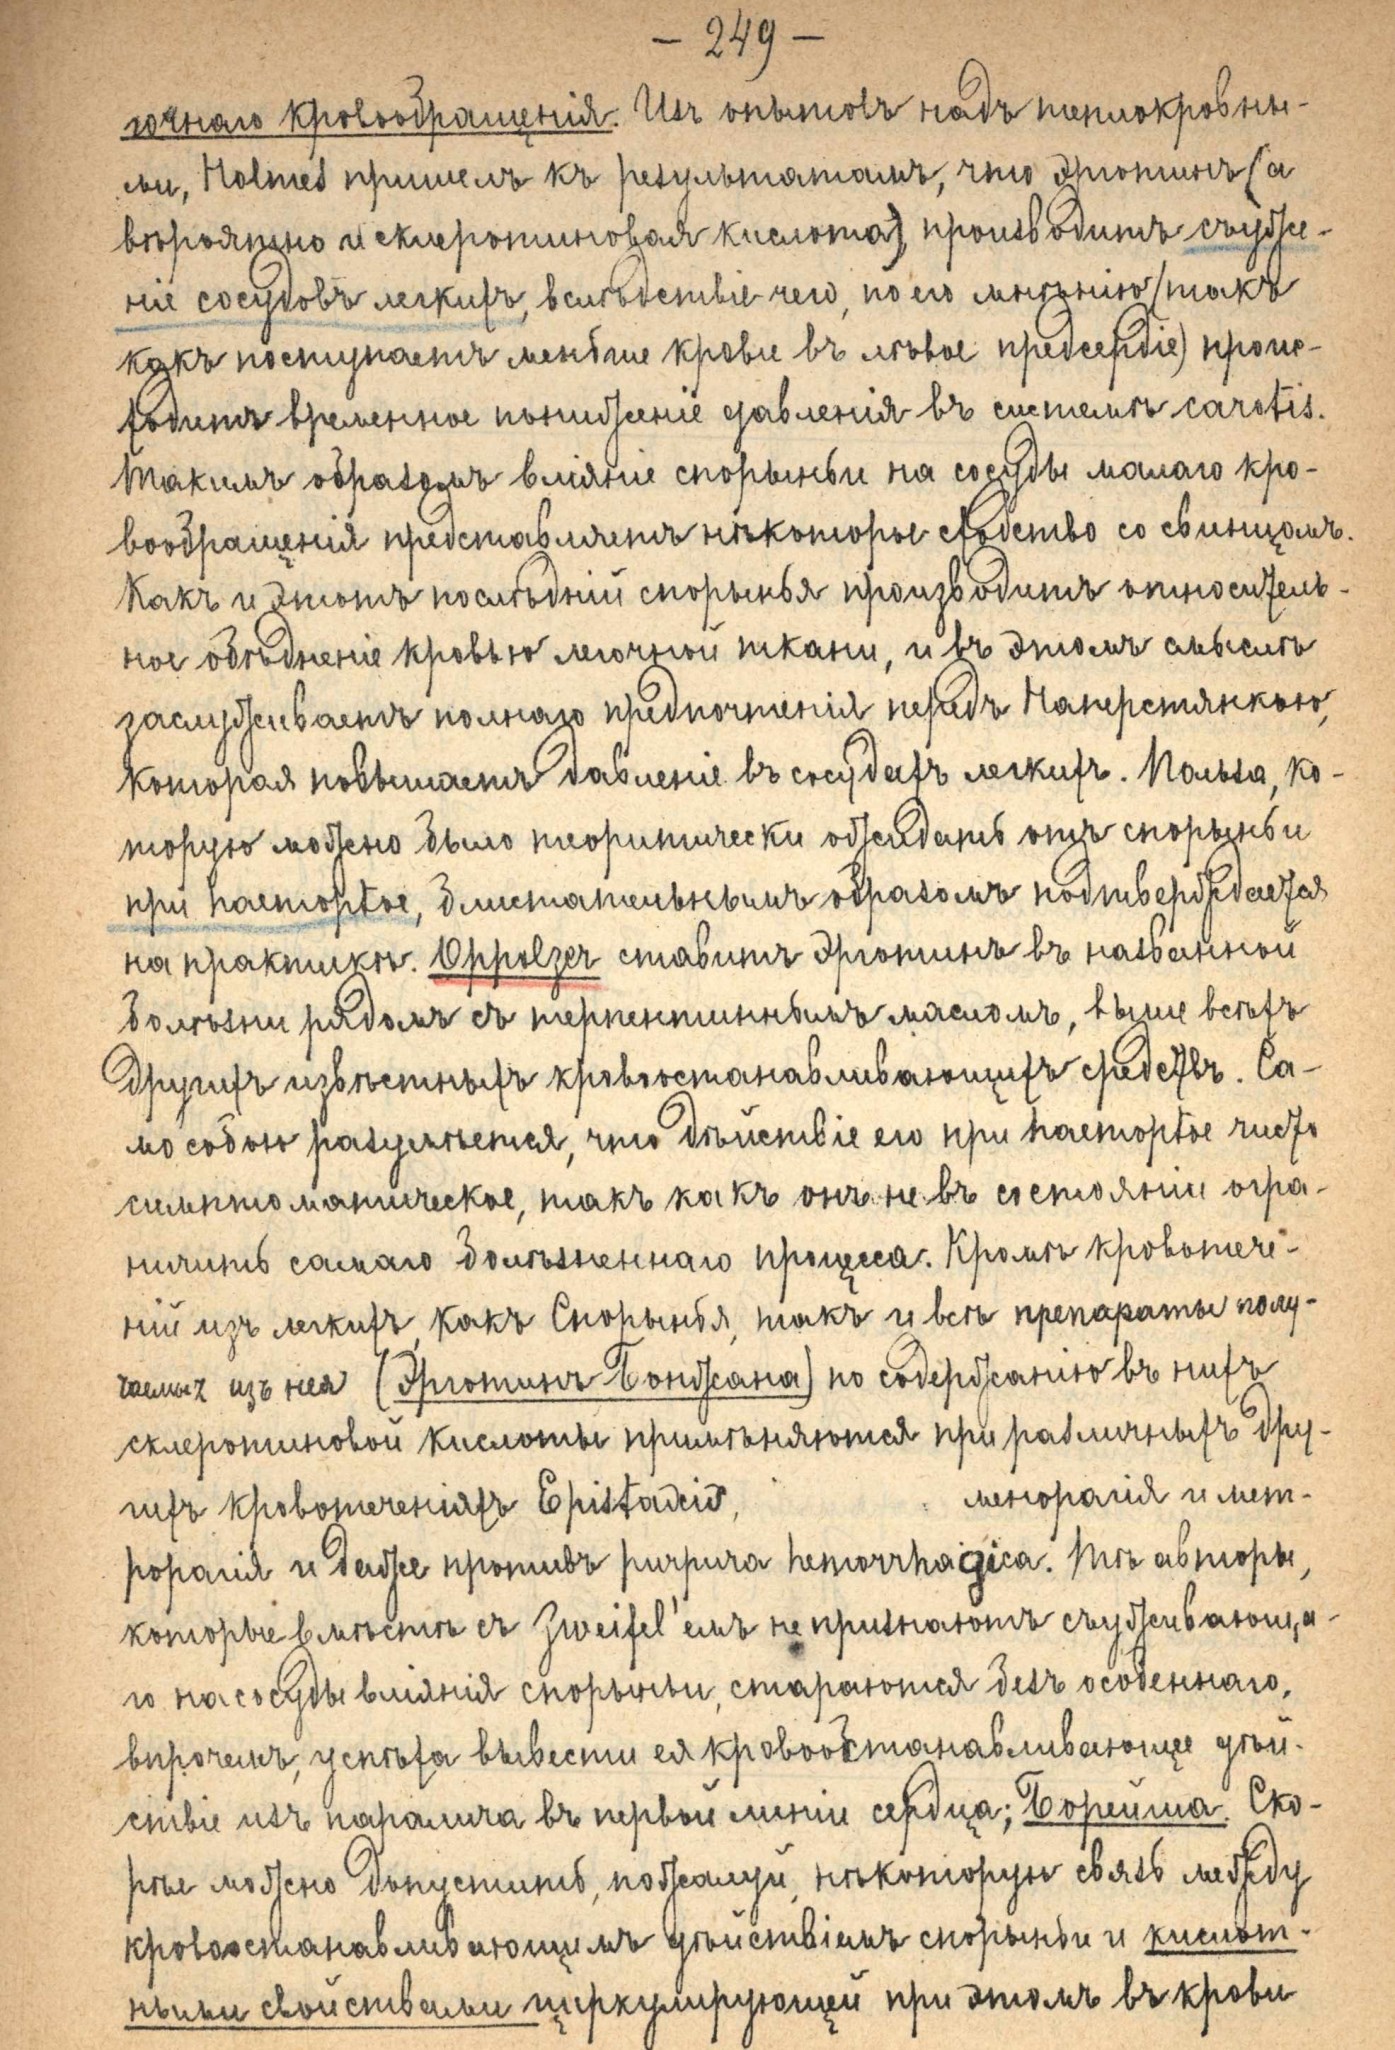 — 249 —
гочнаго кровообращенія. Изъ опытовъ надъ теплокровны-
ми, Holmes пришелъ къ результатамъ, что эрготинъ (а
вѣроятно и склеротиновая кислота), производитъ съуже-
ніе сосудовъ легкихъ, вслѣдствіе чего, по его мнѣнію (такъ
какъ поступаетъ меньше крови въ лѣвое предсердіе) проис-
ходитъ временное пониженіе давленія въ системѣ carotis.
Такимъ образомъ вліяніе спорыньи на сосуды малаго кро-
вообращенія представляетъ нѣкоторые сходство со свинцомъ.
Какъ и этотъ послѣдній спорынья производитъ относитель-
ное обѣднение кровью легочной ткани, и въ этомъ смыслѣ
заслуживаетъ полнаго предпочтенія передъ Наперстянкою,
которая повышаетъ давленіе въ сосудахъ легкихъ. Польза, ко-
торую можно было теоритически ожидать отъ спорыньи
при haemoptoe, блистательнымъ образомъ подтверждается
на практикѣ. Oppolzer ставитъ эрготинъ въ названной
болѣзни рядомъ съ терпентиннымъ масломъ, выше всѣхъ
другихъ извѣстныхъ кровоостанавливающихъ средствъ. Са-
мо собою разумѣется, что дѣйствіе его при haemoptoe чисто
симптоматическое, такъ какъ онъ не въ состояніи огра-
ничить самаго болѣзненнаго процесса. Кромѣ кровотече-
ній изъ легкихъ, какъ Спорынья, такъ и всѣ препараты полу-
чаемых изъ нея (Эрготинъ Бонжана) по содержанію въ нихъ
склеротиновой кислоты примѣняются при различныхъ дру-
гихъ кровотеченіяхъ Epistaxis, менорагія и мет-
рорагія и даже противъ purpura hemorrhagica. Тѣ авторы,
которые вмѣстѣ съ Zweifel'емъ не признаютъ съуживающа-
го на сосуды вліянія спорыньи, стараются безъ особеннаго,
впрочемъ, успѣха вывести ея кровоостанавливающее дѣй-
ствіе изъ паралича въ первой линіи сердца; Борейша. Ско-
рѣе можно допустить, пожалуй, нѣкоторую связь между
кровоостанавливающимъ дѣйствіемъ спорыньи и кислот-
ными свойствами циркулирующей при этомъ въ крови